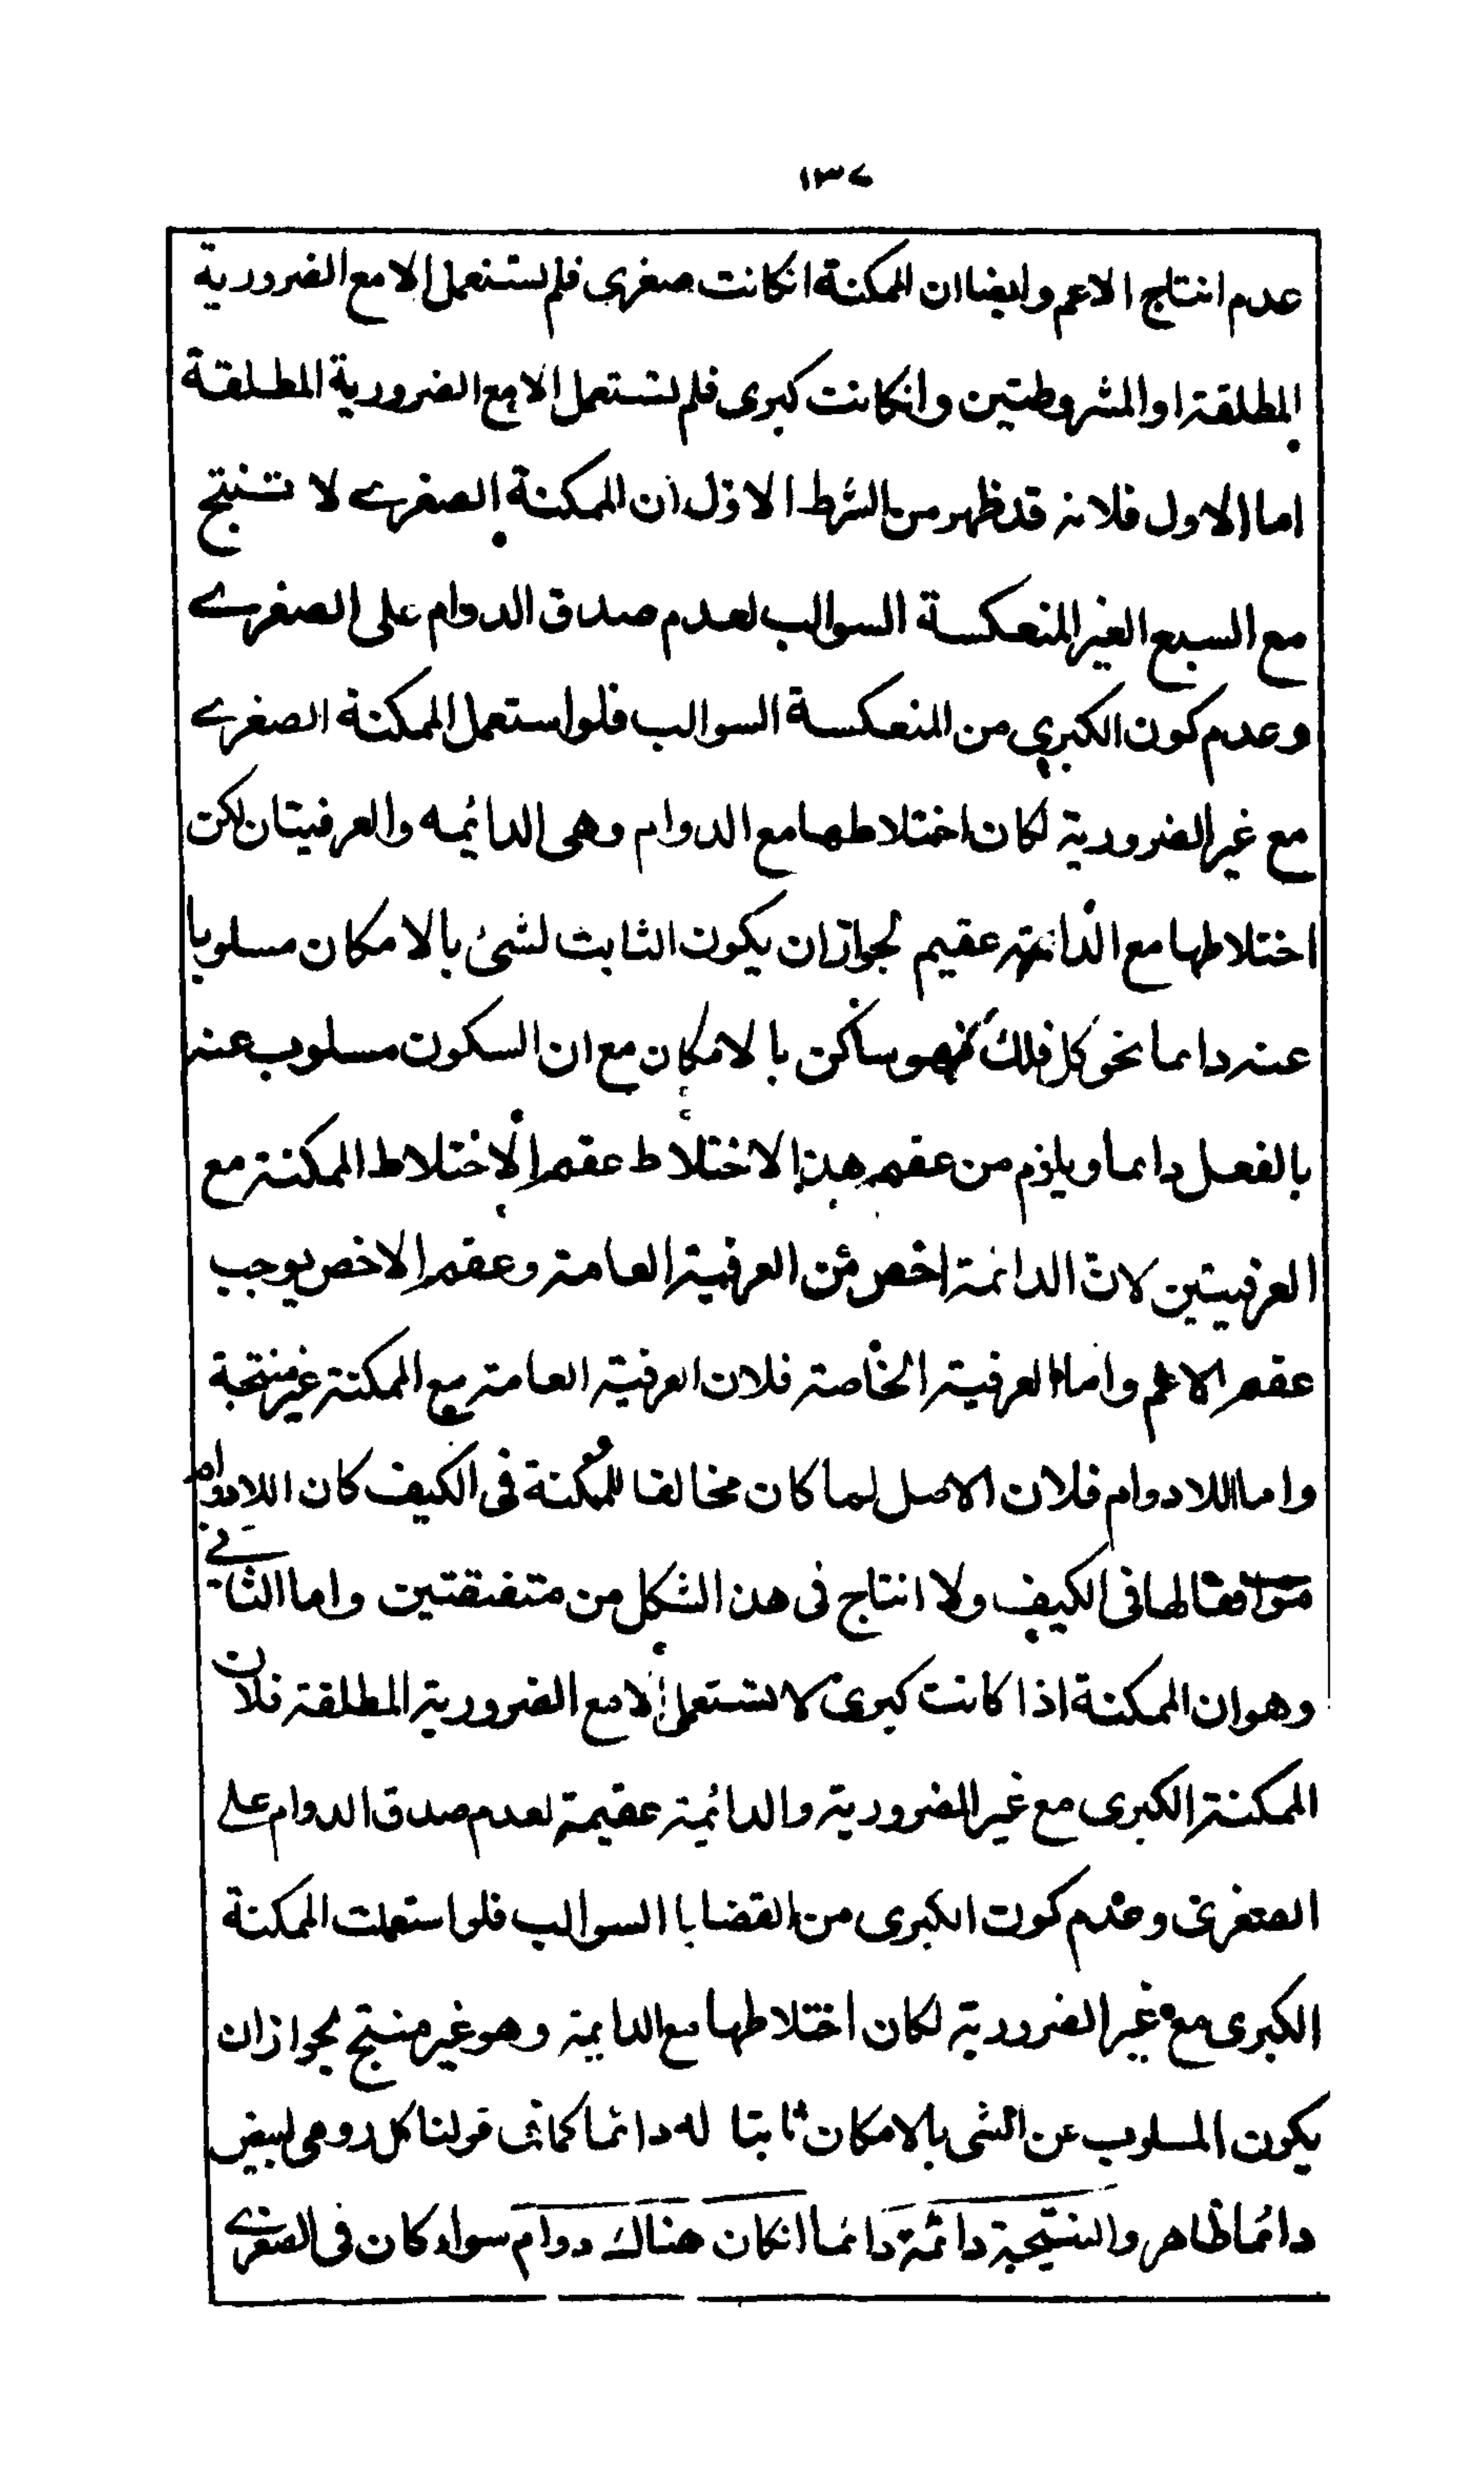 ١٣٧
عدم انتاج الاعم وايضا ان الممكنة انكانت صغرى فلم تستعمل الا مع الضرورية
المطلقة او المشروطتين وانكانت كبرى فلم تستعمل الا مع الضرورية المطلقة
اما الاول فلانه قد ظهر من الشرط الاوّل ان الممكنة الصغرے لا تنتج
مع السبع الغير المنعكسة السوالب لعدم صدق الدوام على الصغرے
وعدم كون الكبرى من المنعكسة السوالب فلو استعمل الممكنة الصغرے
مع غير الضرورية لكان اختلاطها مع الدوام وهى الدائمه والعرفيتان لكن
اختلاطها مع الدائمة عقيم لجواز ان يكون الثابت لشئ بالامكان مسلوبا
عنه دائما نحو كل فلك فهو ساكن بالامكان مع ان السكون مسلوب عنه
بالفعل دائما ويلزم من عقم هذا الاختلاط عقم الاختلاط الممكنة مع
العرفيتين لان الدائمة اخص من العرفية العامة وعقم الاخص يوجب
عقم الاعم واما العرفية الخاصة فلان العرفية العامة مع الممكنة غير منتجة
واما اللادوام فلان الاصل لما كان مخالفا للممكنة فى الكيف كان اللادوام
موافقا لها فى الكيف ولا انتاج فى هذ الشكل من متفقتين واما الثانے
وهو ان الممكنة اذا كانت كبرى لا تستعمل الا مع الضرورية المطلقة فلان
الممكنة الكبرى مع غير الضرورية والدائمية عقيمة لعدم صدق الدوام علے
الصغرى وعدم كون الكبرى من القضايا السوالب فلو استعملت الممكنة
الكبرى مع غير الضرورية لكان اختلاطها مع الدايمة وهو غير منتج لجواز ان
يكون المسلوب عن الشى بالامكان ثابتا له دائما كما فى قولنا كل رومى ابيض
دائما ظاهر والنتيجة دائمة دائما انكان هناك دوام سواء كان فى الصغرے